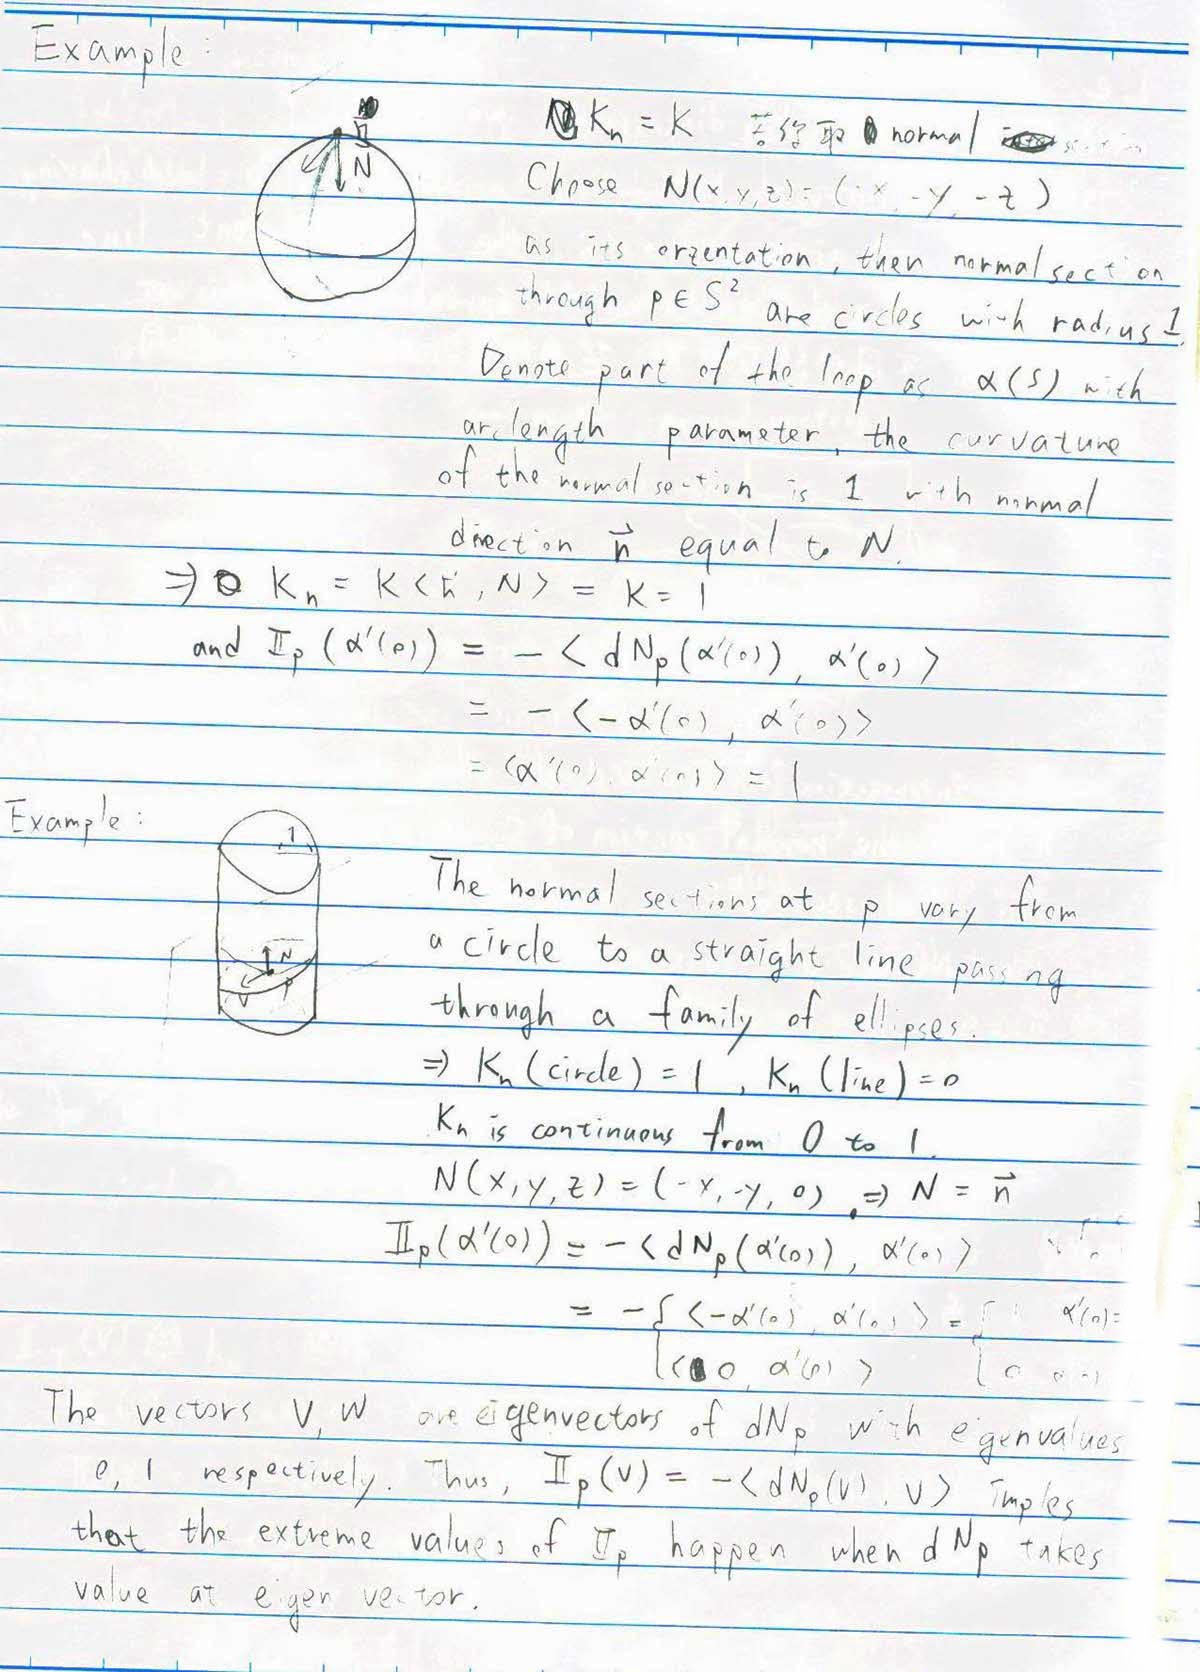 Example:
n
N
Kn = K 若你取 normal section
Choose N(x,y,z)=(-x,-y,-z)
as its orzentation, then normal section
through p∈S² are circles with radius 1.
Denote part of the loop as α(s) with
arclength parameter, the curvature
of the normal section is 1 with normal
direction n⃗ equal to N.
⇒ Kn = K<n⃗, N> = K = 1
and IIp(α'(0)) = -<dNp(α'(0)), α'(0)>
= -<-α'(0), α'(0)>
= <α'(0), α'(0)> = 1
Example:
1
N
V
p
The normal sections at p vary from
a circle to a straight line passing
through a family of ellipses.
⇒ Kn(circle) = 1, Kn(line) = 0
Kn is continuous from 0 to 1.
N(x,y,z) = (-x,-y,0), ⇒ N = n⃗
IIp(α'(0)) = -<dNp(α'(0)), α'(0)>
= -{ <-α'(0), α'(0)> = { 1 α'(0)=
{ <0, α'(0)> { 0
The vectors V, W are eigenvectors of dNp with eigenvalues
0, 1 respectively. Thus, IIp(V) = -<dNp(V), V> Imples
that the extreme values of IIp happen when dNp takes
value at eigen vector.